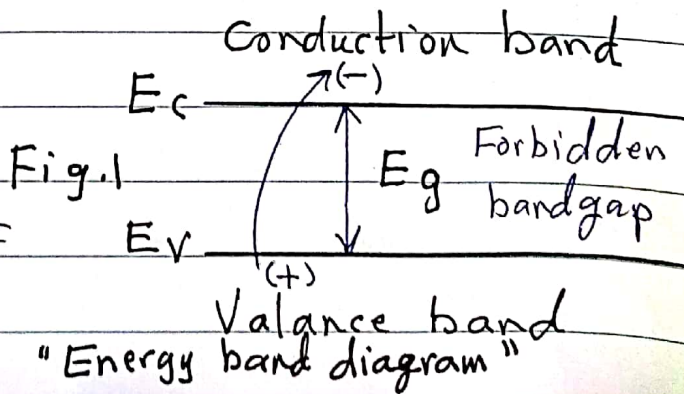 Conduction band
(-)
Ec
Fig.1
Eg
Forbidden
bandgap
Ev
(+)
Valance band
"Energy band diagram"